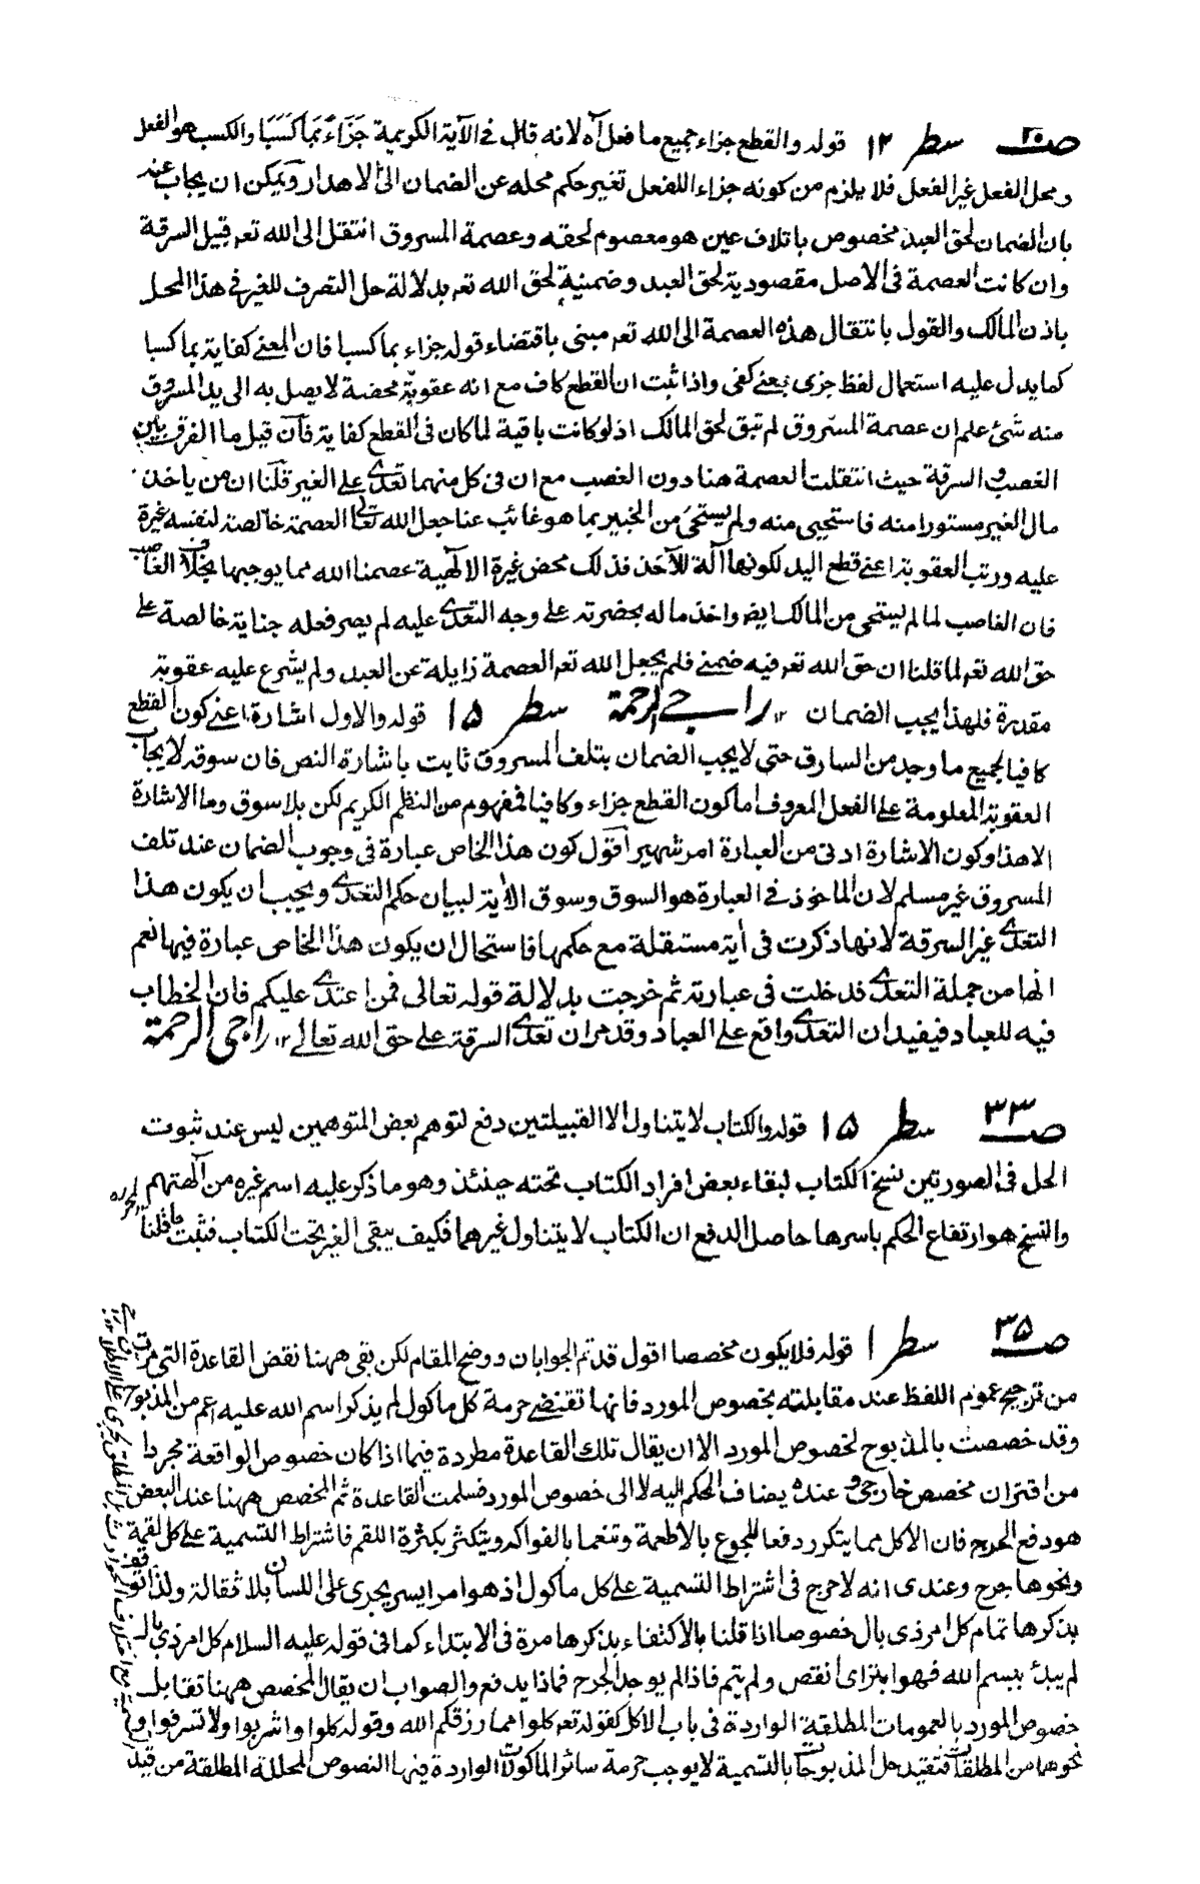 صـ ٢٠ سطر ١٢ قوله والقطع جزاء جميع ما فعل آه لانه قال في الآية الكريمة جَزَاءً بِمَا كَسَبَا والكسب هو الفعل
ومحل الفعل غير الفعل فلا يلزم من كونه جزاء اللفعل تغير حكم محله عن الضمان الى الاهدار ويمكن ان يجاب عنه
بان الضمان لحق العبد مخصوص باتلاف عين هو معصوم لحقه وعصمة المسروق انتقل الى الله تعہ قبيل السرقة
وان كانت العصمة فى الاصل مقصودية لحق العبد وضمنية لحق الله تعہ بدلالة حل التصرف للغير فى هذا المحل
باذن المالك والقول بانتقال هذه العصمة الى الله تعہ مبنى باقتضاء قوله جزاء بما كسبا فان المعنے كفاية بما كسبا
كما يدل عليه استعمال لفظ جزى بمعنے كفى واذا ثبت ان القطع كاف مع انه عقوبة محضة لا يصل به الى يد المسروق
منه شئ علم ان عصمة المسروق لم تبق لحق المالك اذ لو كانت باقية لما كان فى القطع كفاية فآن قيل ما الفرق بين
الغصب و السرقة حيث انتقلت العصمة هنا دون الغصب مع ان فى كل منهما تعدے علے الغير قلنا ان من ياخذ
مال الغير مستورا منه فاستحيى منه ولم يستحى من الخبير بما هو غائب عنا جعل الله تعالٰى العصمة خالصة لنفسه غيرة
عليه ورتب العقوبة اعنے قطع اليد لكونها آلة للآخذ فذلك محض غيرة الالٰهية عصمنا الله مما يوجبها بخلاف الغاصب
فان الغاصب لما لم يستحى من المالك ايضہ واخذ ماله بحضرته علے وجه التعدے عليه لم يصر فعله جناية خالصة علے
حق الله تعہ لما قلنا ان حق الله تعہ فيه ضمنے فلم يجعل الله تعہ العصمة زايلة عن العبد ولم يشرع عليه عقوبة
مقدرة فلهذا يجب الضمان ١٢ راجے الرحمة سطر ١٥ قوله والاول اشارة اعنے كون القطع
كافيا لجميع ما وجد من السارق حتى لا يجب الضمان بتلف المسروق ثابت باشارة النص فان سوقه لايجاب
العقوبة المعلومة علے الفعل المعروف اما كون القطع جزاء وكافيا فمفهوم من النظم الكريم لكن بلا سوق وما الاشارة
الا هذا وكون الاشارة ادنى من العبارة امر شهير آقول كون هذا الخاص عبارة فى وجوب الضمان عند تلف
المسروق غير مسلم لان الماخوذ فے العبارة هو السوق وسوق الآية لبيان حكم التعدے ويجب ان يكون هذا
التعدے غير السرقة لانها ذكرت فى أية مستقلة مع حكمها فاستحال ان يكون هذا الخاص عبارة فيها نعم
انها من جملة التعدے قد دخلت فى عبارته ثم خرجت بدلالة قوله تعالى فمن اعتدے عليكم فان الخطاب
فيه للعباد فيفيد ان التعدے واقع علے العباد وقد مر ان تعدے السرقة على حق الله تعالے ١٢ راجى الرحمة
صـ ٣٣ سطر ١٥ قوله والكتاب لا يتناول الا القبيلتين دفع لتوهم بعض المتوهمين ليس عند ثبوت
الحل فى الصورتين نسخ الكتاب لبقاء بعض افراد الكتاب تحته حينئذ وهو ما ذكر عليه اسم غيره من آلهتهم
والنسخ هو ارتفاع الحكم باسرها حاصل الدفع ان الكتاب لا يتناول غيرهما فكيف يبقى الغير تحت الكتاب فثبت ما قلنا
لمحرره
صـ ٣٥ سطر ١ قوله فلا يكون مخصصا اقول قد تم الجوابان ووضح المقام لكن بقى ههنا نقض القاعدة التى مرت
من ترجيح عموم اللفظ عند مقابلته بخصوص المورد فانها تقتضے حرمة كل ماكول لم يذكر اسم الله عليه اعم من المذبوح
وقد خصصت بالمذبوح لخصوص المورد الا ان يقال تلك القاعدة مطردة فيما اذا كان خصوص الواقعة مجردا
من اقتران مخصص خارجى و عنده يضاف الحكم اليه لا الى خصوص المورد فسلمت القاعدة ثم المخصص ههنا عند البعض
هو دفع الحرج فان الاكل مما يتكرر دفعا للجوع بالاطعمة وتنعما بالفواكه ويتكثر بكثرة اللقم فاشتراط التسمية علے كل لقمة
ونحوها حرج وعندى انه لا حرج فى اشتراط التسمية علے كل ماكول اذ هو امر ايسر يجرى على اللسان بلا ثقالة ولذا توقف
بذكرها تمام كل امر ذى بال خصوصا اذا قلنا بالاكتفاء بذكرها مرة فى الابتداء كما فى قوله عليه السلام كل امر ذى بال
لم يبدئ ببسم الله فهو ابتراى انقص ولم يتم فاذا لم يوجد الحرج فماذا يدفع والصواب ان يقال المخصص ههنا تقابل
خصوص المورد بالعمومات المطلقة الواردة فى باب الاكل كقوله تعہ كلوا مما رزقكم الله وقوله كلوا واشربوا ولا تسرفوا و
نحوهما من المطلقات فتقيد حل المذبوحات بالتسمية لا يوجب حرمة سائر الماكولات الواردة فيها النصوص المحللة المطلقة من قيد